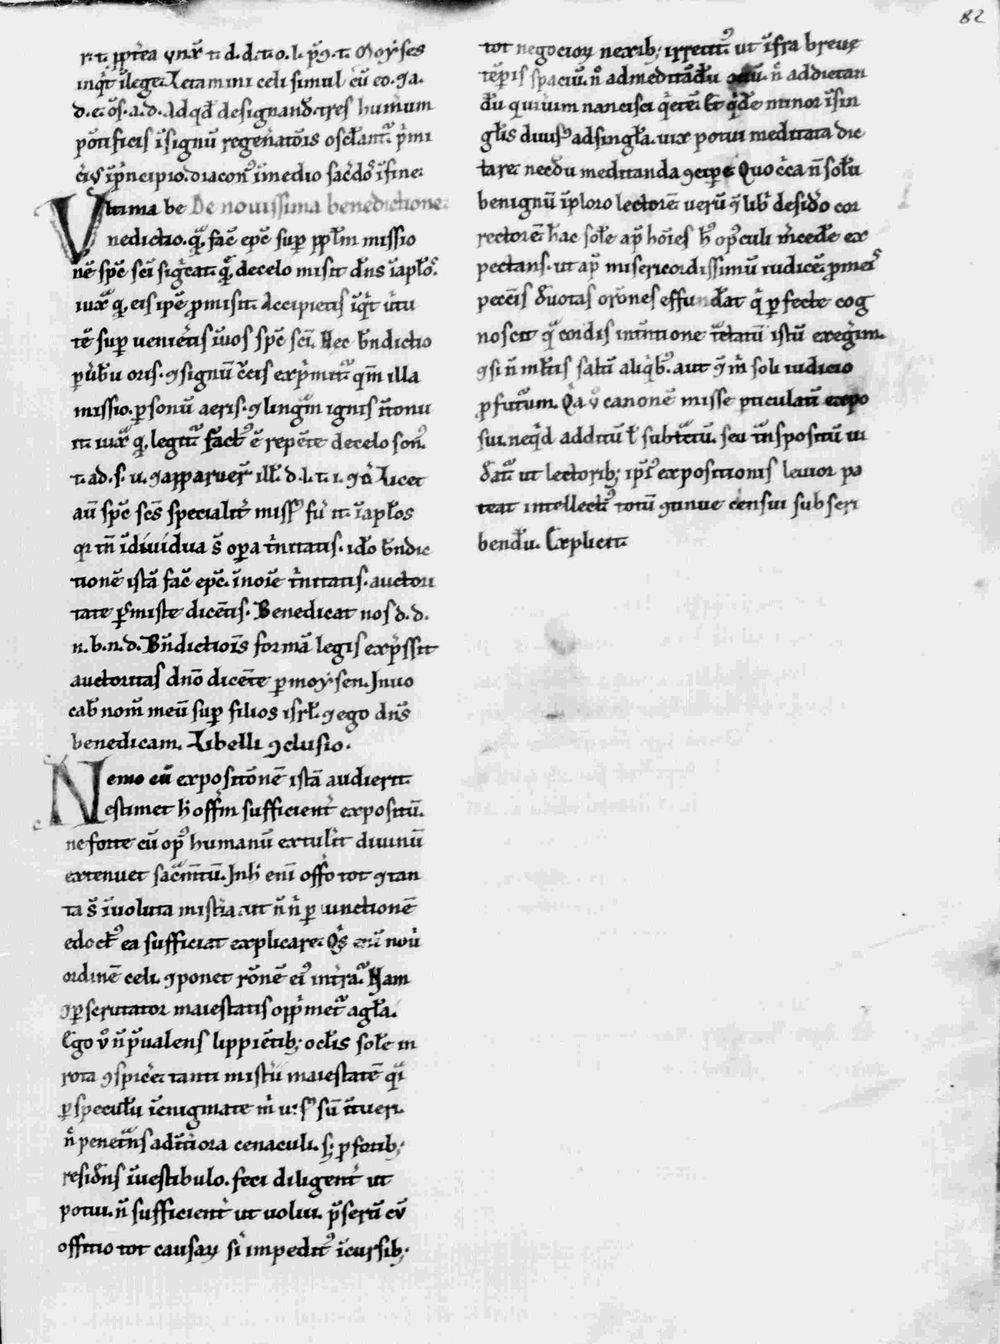 82
inqͥt ī lege. Letamini celi simul cū eo. ⁊ a.
d. e. os̄. a. d. Ad qd̄ designand. tres humum
pontificis ī signū regenatōis oscl̄ant᷑ pͥmi
eiꝰ pͥncipio. diacon᷒ ī medio sac̄dos ī fine.
Vltima be De nouissima benedictione.
nedictio. q̄. fac̄ ep̄c suꝑ ppl̄m missio
nē sp̄c sc̄i sigͥcat. q̄. de celo misit dn̄s ī apl̄os.
iuxͣ q. eis ip̄e ꝓmisit. Accipietis īqͥt ūtu
tē suꝑ uenietis ī uos sp̄c sc̄i. Hec bn̄dictio
ꝑ ūbū oris. ⁊ signū c̄cis expͥmit᷑ qͣm illa
missio. ꝑ sonū aeris. ⁊ linguam ignis ītonu
it. iuxͣ q. legit᷑ fact᷒ ē repēte de celo son᷒.
t. ad. s. u. ⁊ apparuer̄ ill̄. d. l. t. i. ⁊ c̄. Licet
aū sp̄c sc̄s specialit̄ miss᷒ fuͥit ī apl̄os
qͥ tn̄ īdiuidua s̄ oꝑa tͥnitatis. ido bn̄dic
tionē istā fac̄ ep̄c. ī noīe tͥnitatis. auctori
tate ꝑmiste dicētis. Benedicat nos d. d.
n. b. n. d. Bn̄dictiois formā legis expͥssit
auctoritas dn̄o dicēte ꝑ moysen. Inuo
cab̄ nom̄ meū suꝑ filios isrl̄. ⁊ ego dn̄s
benedicam. Libelli ꝯclusio.
Nemo cū expositionē istā audierit.
estimet h̄ offm̄ sufficient̄ expositū.
ne forte cū op᷒ humanū extulit̄ diuinū
extenuet sacͣm̄tū. In h̄ enī offo tot ⁊ tan
ta s̄ īuoluta mistia. ut n̄ nͥ ꝑ unctionē
edoct᷒ ea sufficiat explicare. Qͥs enī nouͥ
ordinē celi. ⁊ ponet rōnē ei᷒ in tͥra. Nam
ꝯꝑscrutator maiestatis oppͥmet᷑ a gl̄a.
Ego ū n̄ p̄ualens lippiētibꝫ ocl̄is sole in
rota ꝯspicͥe. tanti mistͥii maiestatē qͣi
ꝑ speculū ī enigmate
n̄ penetͣns ad īt̄iora cenaculi. sꝫ ꝑ foribꝫ
residēs ī uestibulo. feci diligent̄ ut
potui. n̄ sufficient̄ ut uolui. p̄sertī cū
officio tot causaꝝ sī impedit᷒ īcursibꝫ
tot negocioꝝ nexibꝫ irretit᷒ ut īfra breue
tēpis spaciū. n̄ ad meditādū ocͥū. n̄ ad dictan
dū qui uim nancisci qͥetē. Et qͥdē minor ī sin
gl̄is diuis᷒ ad singl̄a. uix potui meditata dic
tare. necdū meditanda ꝯcipe. Quocͥca n̄ solū
benignū īploro lectorē. uerū ⁊ libͥ desido cor
rectorē. hac sole ap̄ hoīes h᷒ op̄culi m̄cedē ex
pectans. ut ap̄ misericordissimū iudicē. ꝓ meis
peccīs duotas orones effundat qͥ ꝑfecte cog
noscit qͣ cordis intētione tētatū istū exegim.
⁊ si n̄ ml̄tis saltī aliqͥb᷒. aut ⁊ m̄ soli iudicio
ꝓfutͣum. Qͣ ū canonē misse pticulatī expo
sui. neqͥd additū ł subtͣctū. seu tͣnspositū ui
deat᷑ ut lectoribꝫ ipͥ᷒ expositionis leuior pa
teat intellect᷒ totū ꝯtinue censui subscri
bendū. Explicit.